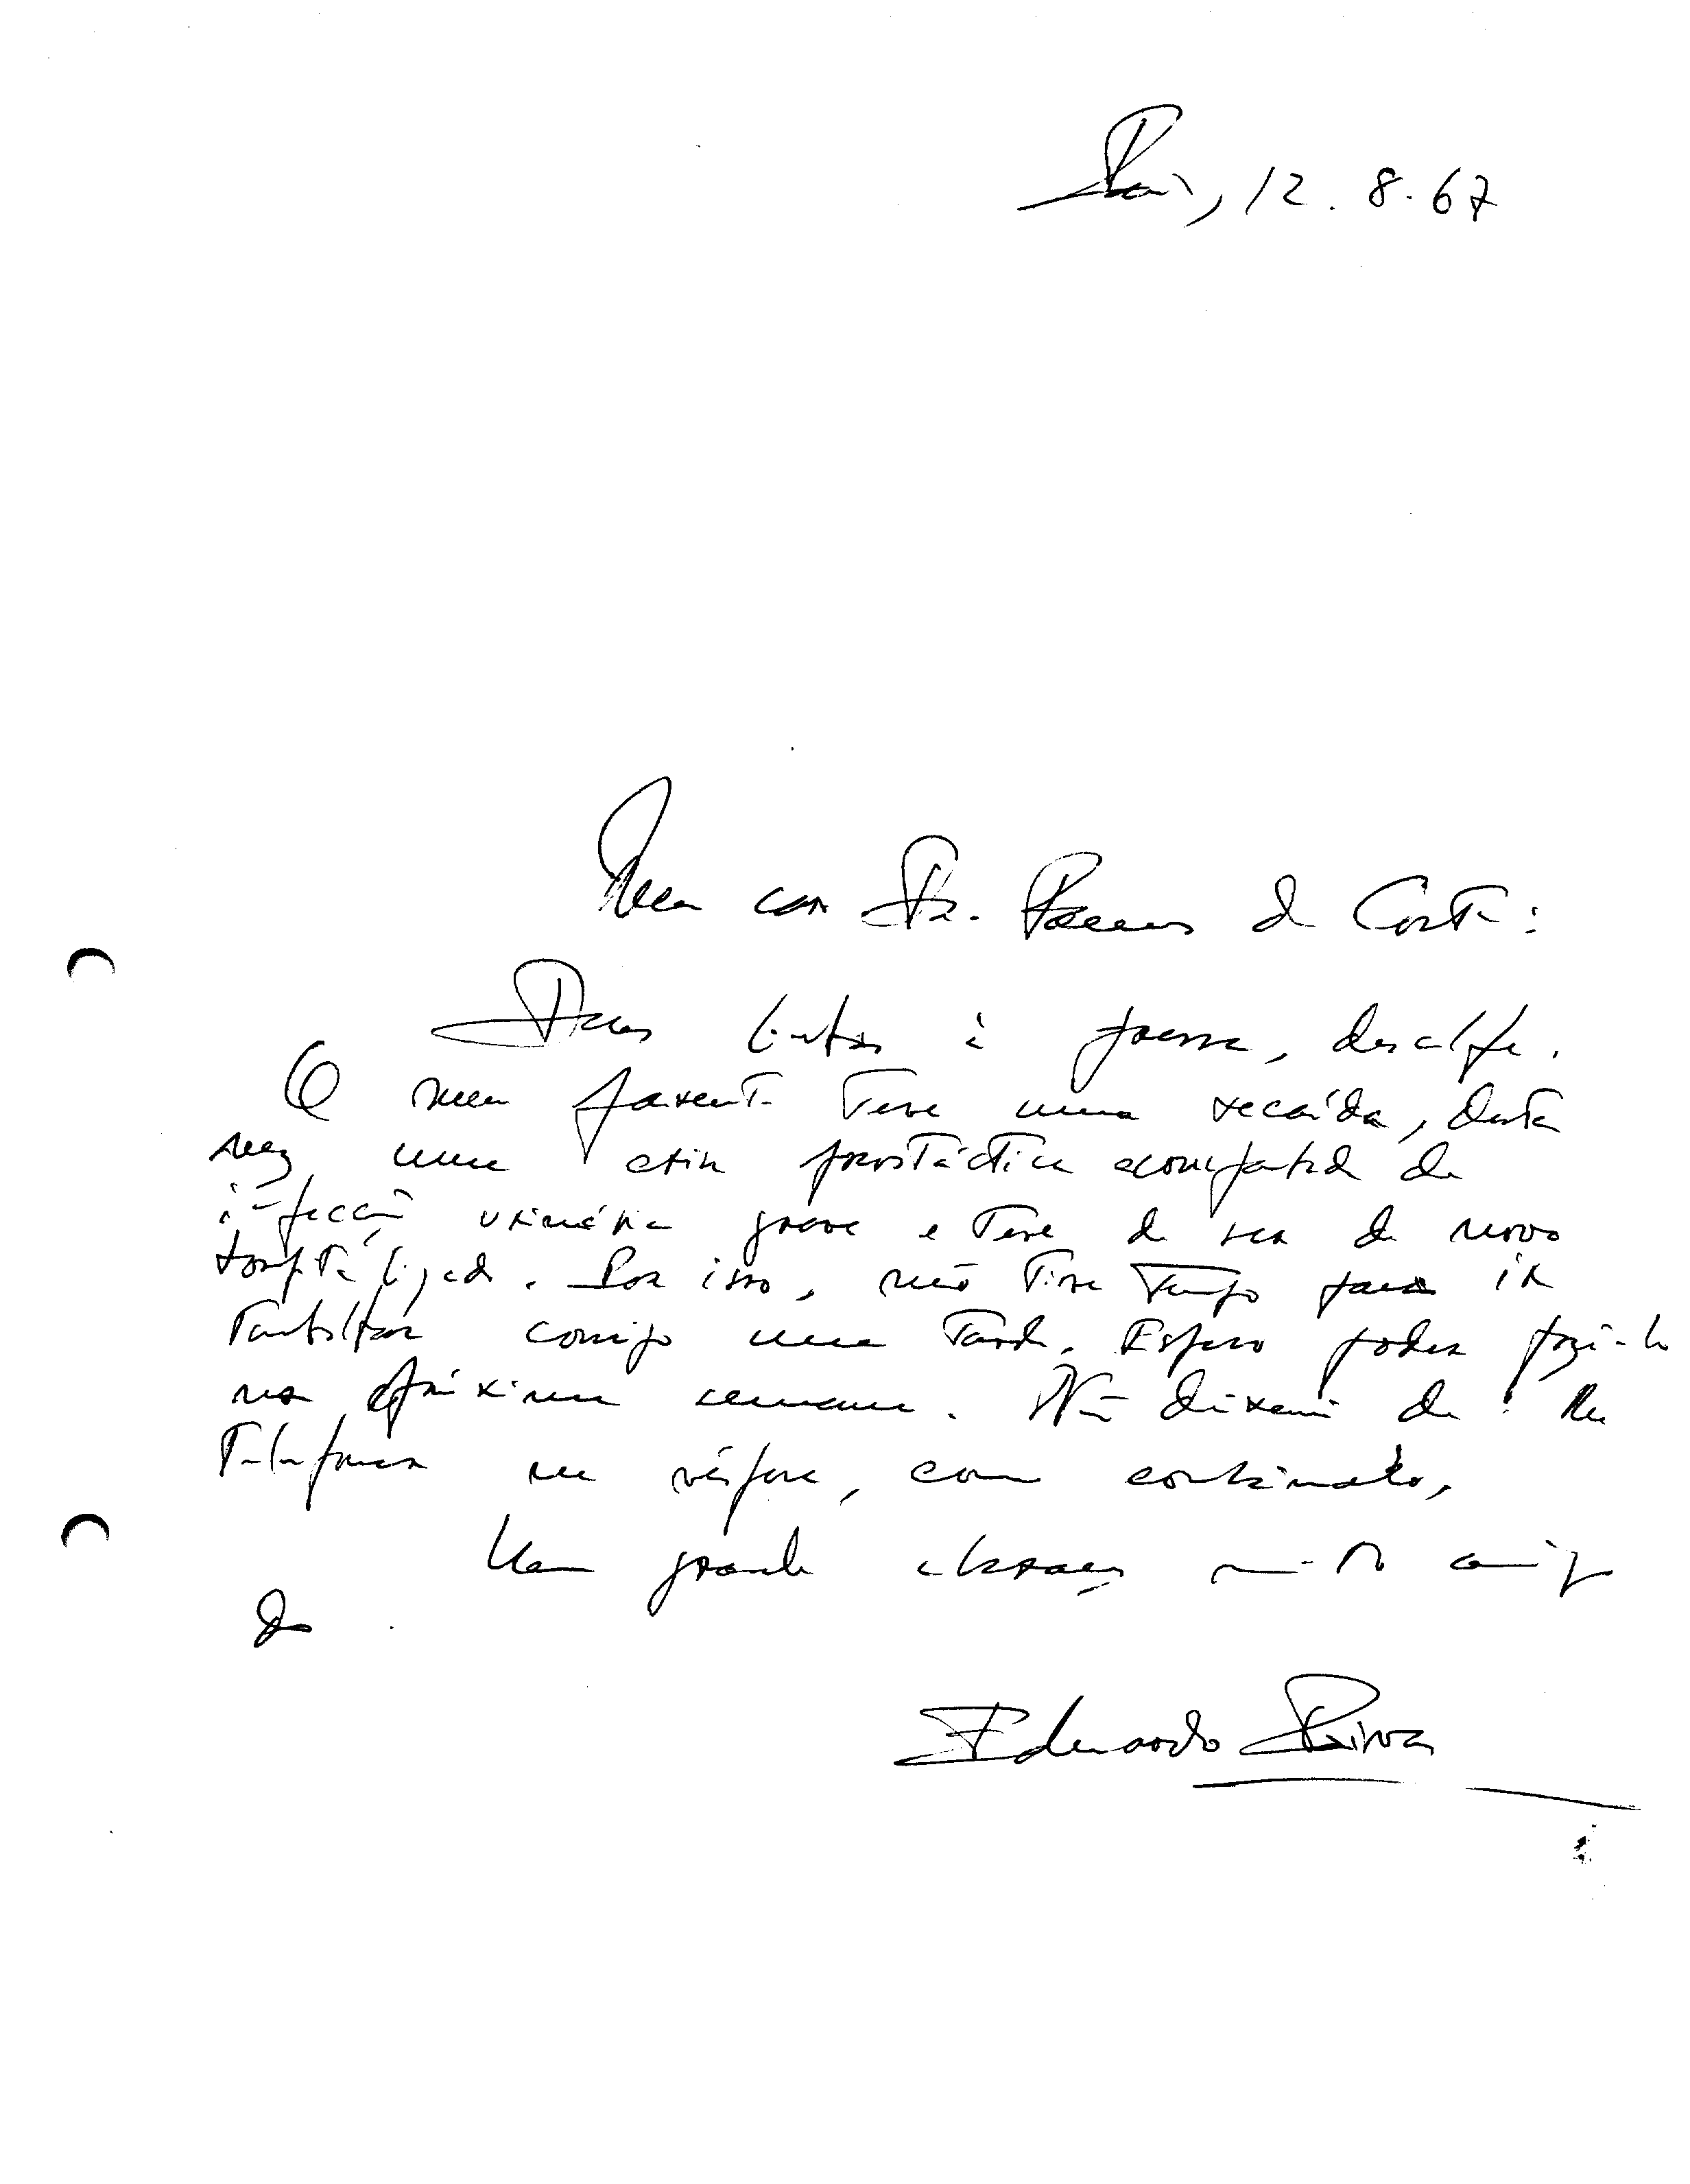 12.8.67
Meu caro Dr. Ramos da Costa:
Duas linhas à pressa,
O meu parente teve uma recaída, desta
vez uma crise prostáctica acompanhada de
infecção urinária grave e teve de ser de novo
hospitalizado. Por isso, não tive tempo para ir
consigo uma tarde. Espero poder fazê-lo
na próxima semana. Não deixarei de lhe
telefonar na véspera, como combinado,
Um grande abraço muito amigo
do
Eduardo